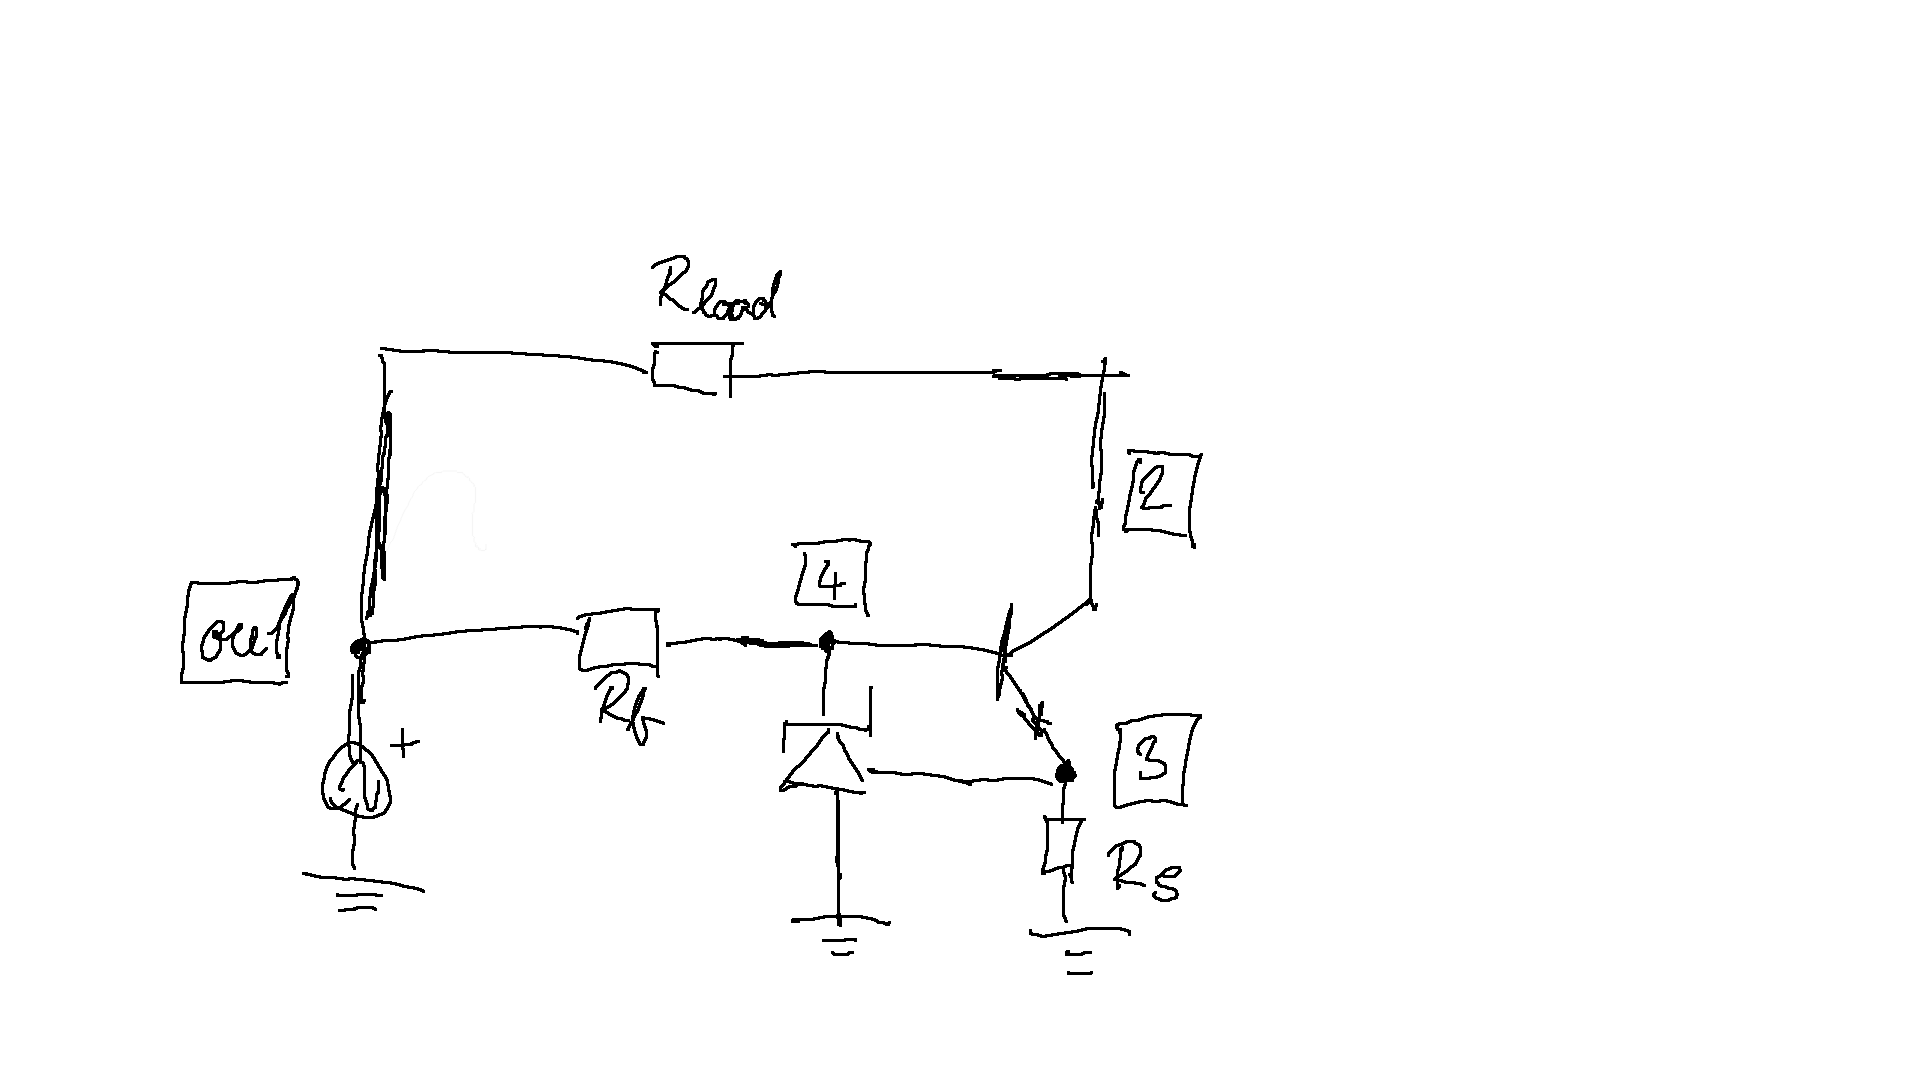 Rload
2
4
out
Rb
+
3
Rs